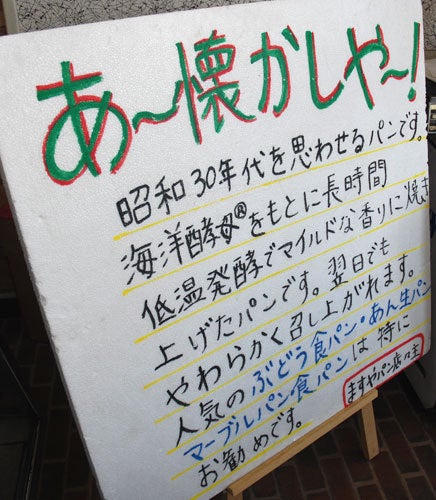 あ〜懐かしや〜!
昭和30年代を思わせるパンです。
海洋酵母®をもとに長時間
低温発酵でマイルドな香りに焼き
上げたパンです。翌日でも
やわらかく召し上がれます。
人気のぶどう食パン・あん生パン
マーブルパン・食パンは特に
お勧めです。
ますやパン店々主